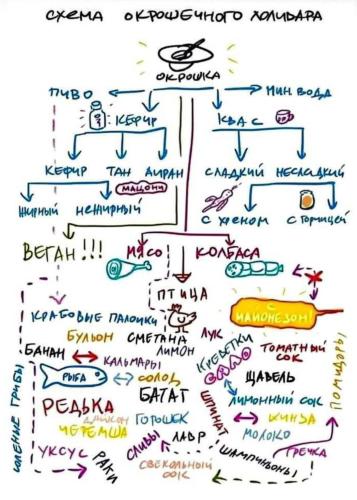 СХЕМА ОКРОШЕЧНОГО ХОЛИВАРА
ОКРОШКА
ПИВО
МИН ВОДА
КЕФИР
КВАС
КЕФИР ТАН АЙРАН
СЛАДКИЙ НЕСЛАДКИЙ
МАЦОНИ
ЖИРНЫЙ НЕЖИРНЫЙ
С ХРЕНОМ С ГОРЧИЦЕЙ
ВЕГАН!!!
МЯСО КОЛБАСА
ПТИЦА
МАЙОНЕЗОМ!
КРАБОВЫЕ ПАЛОЧКИ
БУЛЬОН СМЕТАНА ЛУК
ТОМАТНЫЙ СОК
БАНАН КАЛЬМАРЫ ЛИМОН
КРЕВЕТКИ
ПОМИДОРЫ
СОЛЕНЫЕ ГРИБЫ
РЫБА СОЛОД
ЩАВЕЛЬ
БАТАТ
ШПИНАТ
ЛИМОННЫЙ СОК
РЕДЬКА
ДАЙКОН ГОРОШЕК
КИНЗА
ЧЕРЕМША
МОЛОКО
УКСУС РАКИ СЛИВЫ ЛАВР
ШАМПИНЬОНЫ ГРЕЧКА
СВЕКОЛЬНЫЙ СОК